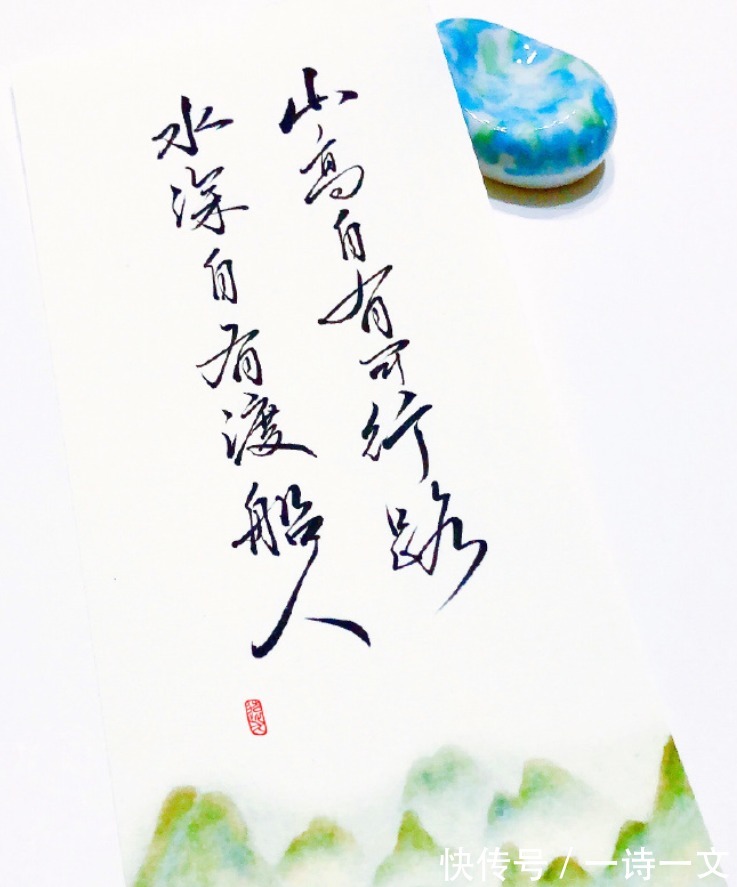 山高自有可行路
水深自有渡船人
快传号 / 一诗一文